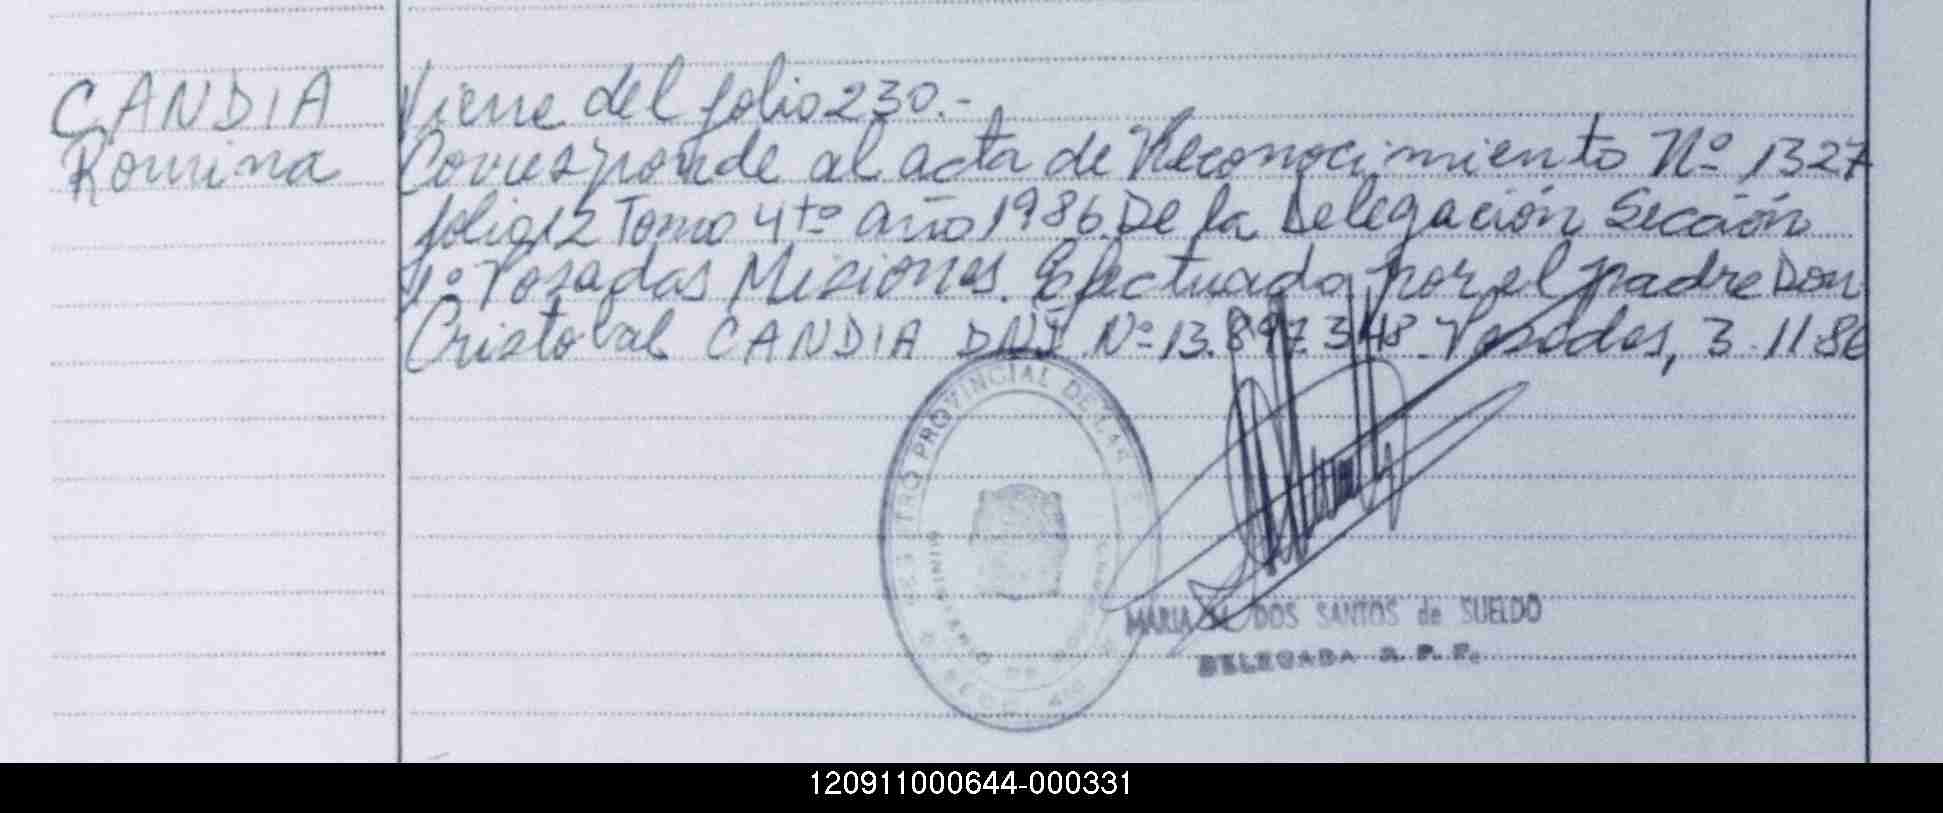 CANDIA
Romina
Viene del folio 230.-
Corresponde al acta de Reconocimiento Nº 1327
folio 12 Tomo 4to año 1986. De la Delegación Sección
1º Posadas Misiones. Efectuado por el padre Don
Cristobal CANDIA DNI Nº 13.897.348. Posadas, 3-11-86
REGISTRO PROVINCIAL DE LAS
MINISTERIO DE
MARIA DOS SANTOS de SUELDO
DELEGADA R. P. P.
120911000644-000331